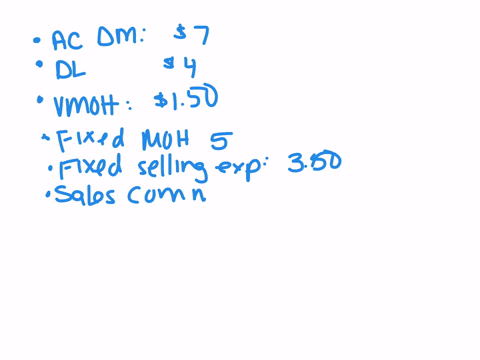 • AC DM: $7
• DL $4
• VMOH: $1.50
• Fixed MOH 5
• Fixed selling exp: 3.50
• Sales comn